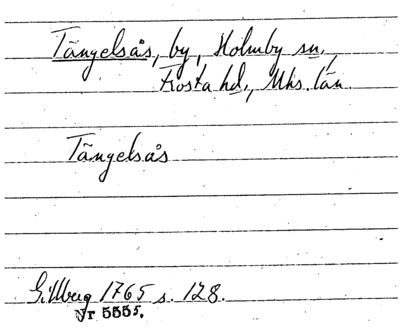 Tängelsås, by, Holmby sn,
Frosta hd., Mhs. län.
Tängelsås
Gillberg 1765 s. 128.
Nr 5555.